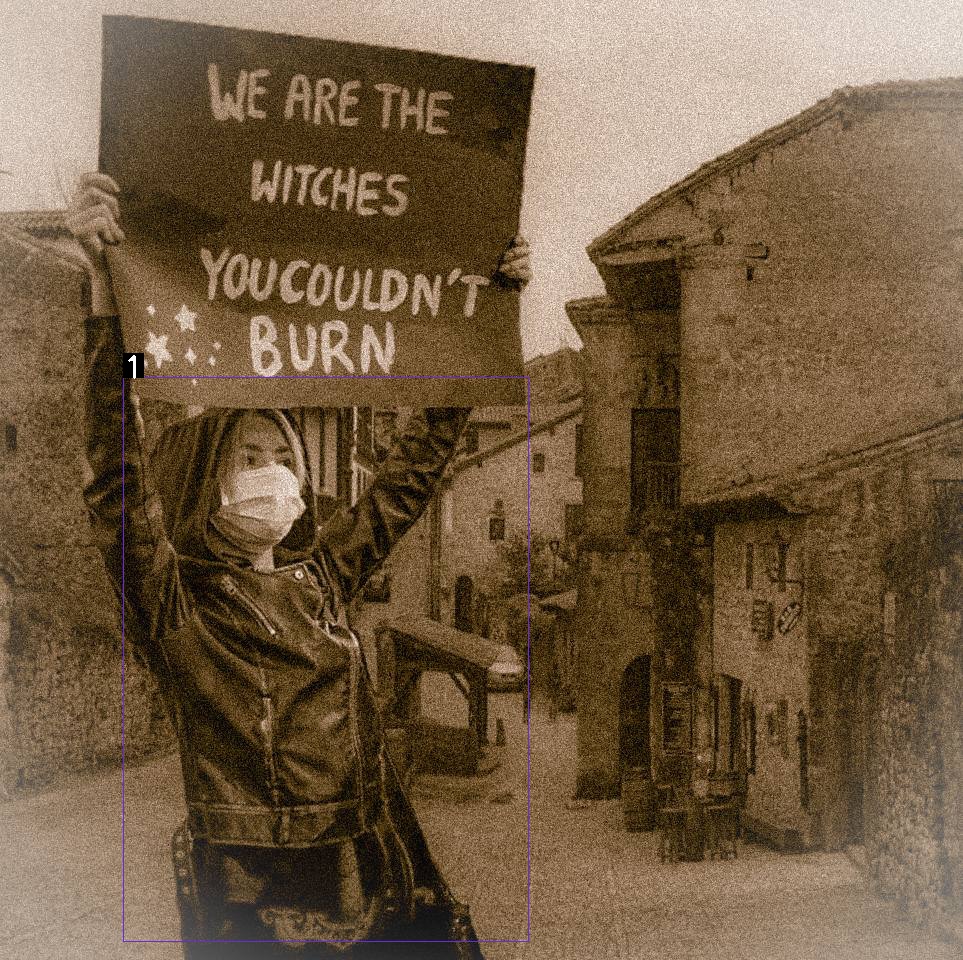 WE ARE THE
WITCHES
YOU COULDN'T
BURN
1